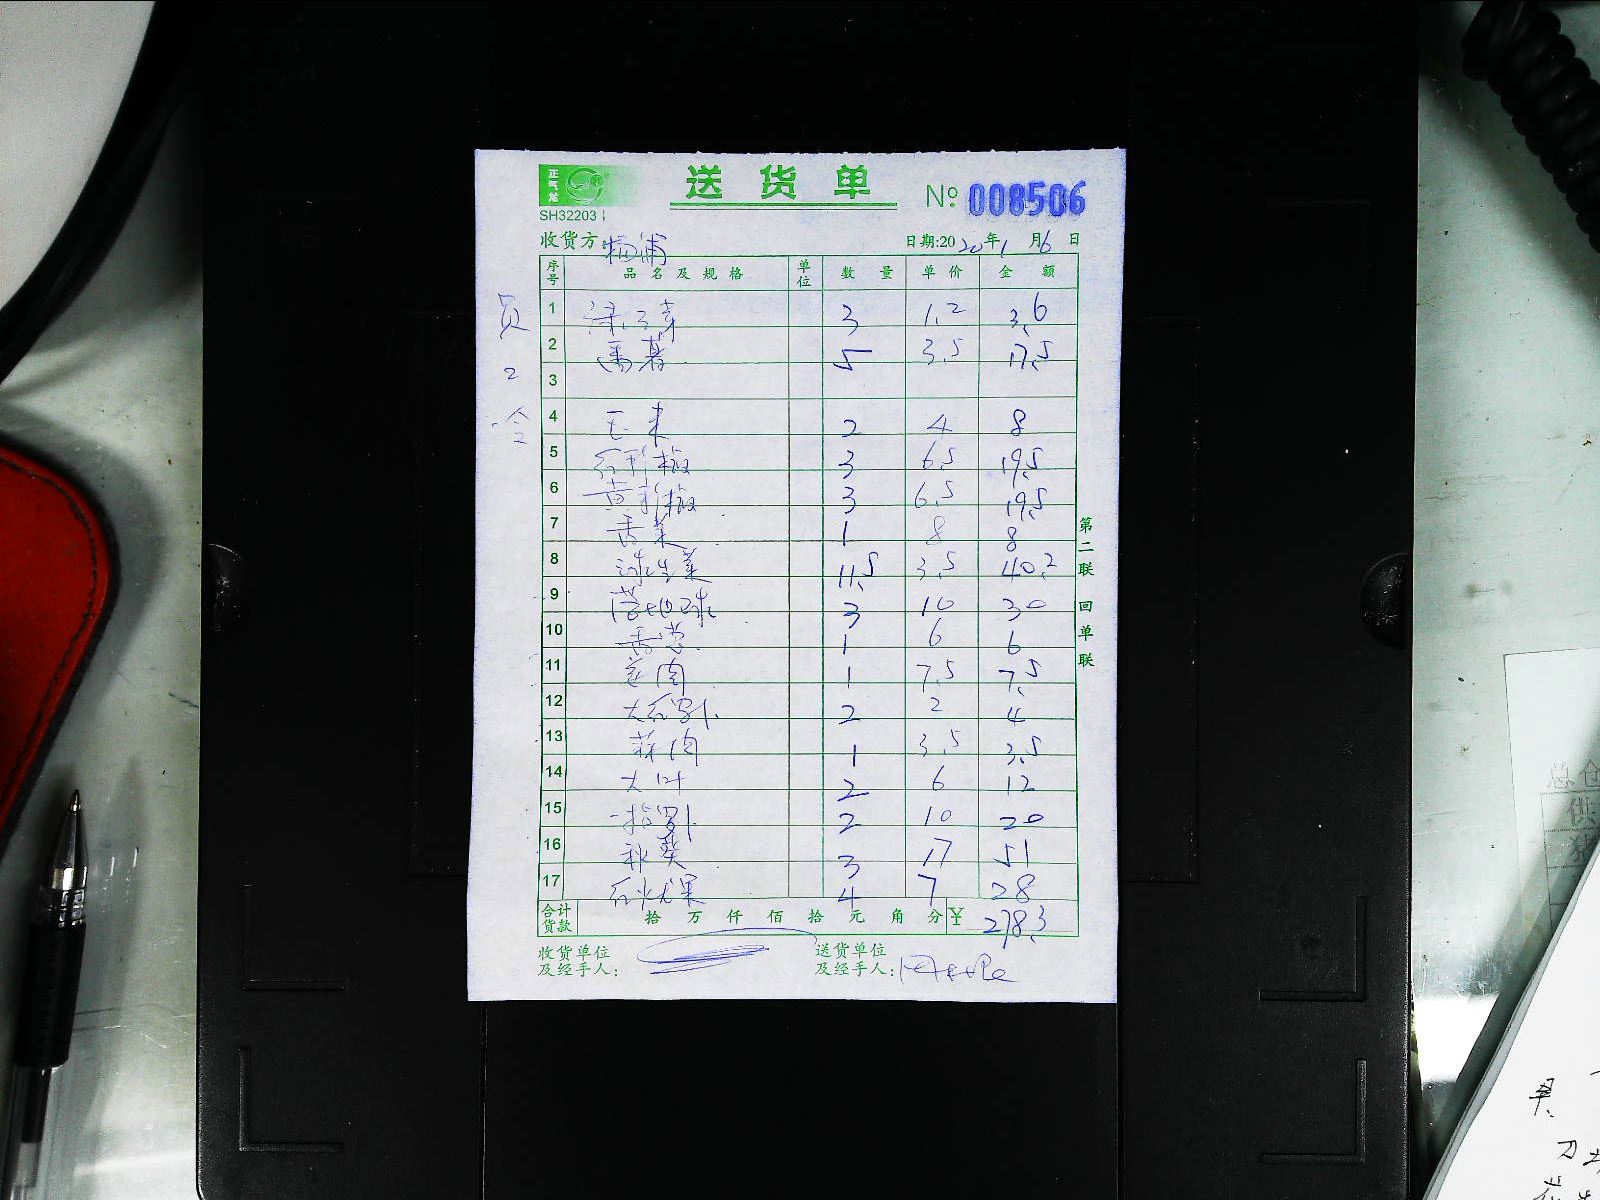 正气龙
SH32203
送货单
№ 008506
收货方: 杨浦
日期:2020年1月6日
序号 品名及规格 单位 数量 单价 金额
1 绿豆芽 3 1.2 3.6
2 番茄 5 3.5 17.5
3
4 玉米 2 4 8
5 红彩椒 3 6.5 19.5
6 黄彩椒 3 6.5 19.5
7 香菜 1 8 8
8 球生菜 11.5 3.5 40.2
9 3 10 30
10 香葱 1 6 6
11 1 7.5 7.5
12 2 2 4
13 蒜肉 1 3.5 3.5
14 大叶 2 6 12
15 2 10 20
16 秋葵 3 17 51
17 红火龙果 4 7 28
合计货款 拾 万 仟 佰 拾 元 角 分 ¥ 278.3
收货单位及经手人:
送货单位及经手人:
第二联 回单联
员工